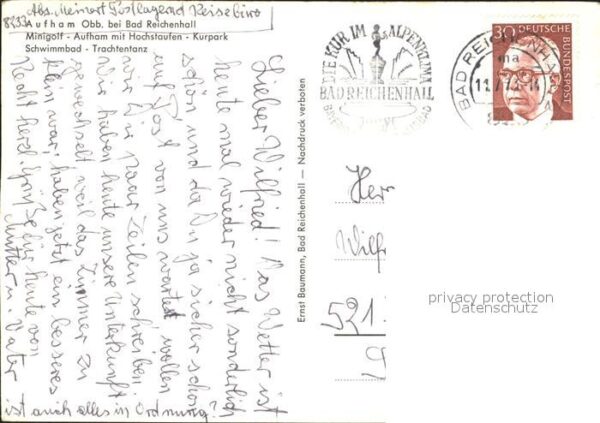 Abs. Meinert Postlagernd Reisebüro
8233
Aufham Obb. bei Bad Reichenhall
Minigolf - Aufham mit Hochstaufen - Kurpark
Schwimmbad - Trachtentanz
Lieber Wilfried! Das Wetter ist
heute mal wieder nicht sonderlich
schön und da Du ja sicher schon
auf Post von uns wartest wollen
wir Dir paar Zeilen schreiben.
Wir haben heute unsere Unterkunft
gewechselt weil das Zimmer zu
klein war, haben jetzt ein besseres.
Recht herzl. Grüße für heute von
Mutter u. Vater
ist auch alles in Ordnung?
Ernst Baumann, Bad Reichenhall — Nachdruck verboten
DIE KUR IM ALPENKLIMA
BAD REICHENHALL
BAD REICHENHALL
ma
30
DEUTSCHE
BUNDESPOST
Herr
Wilf
521
privacy protection
Datenschutz